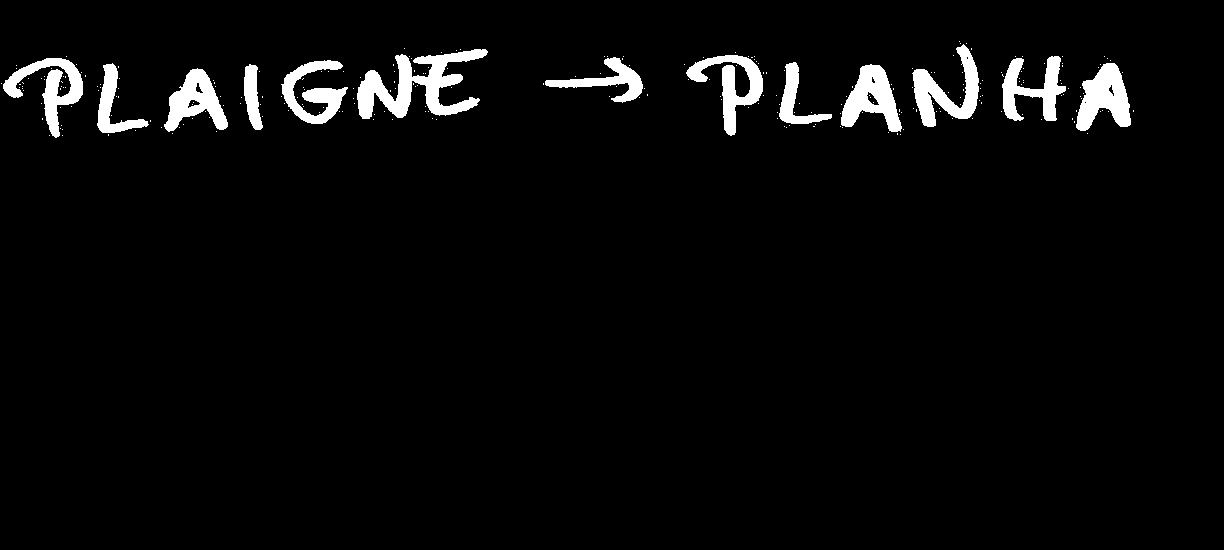 PLAIGNE → PLANHA